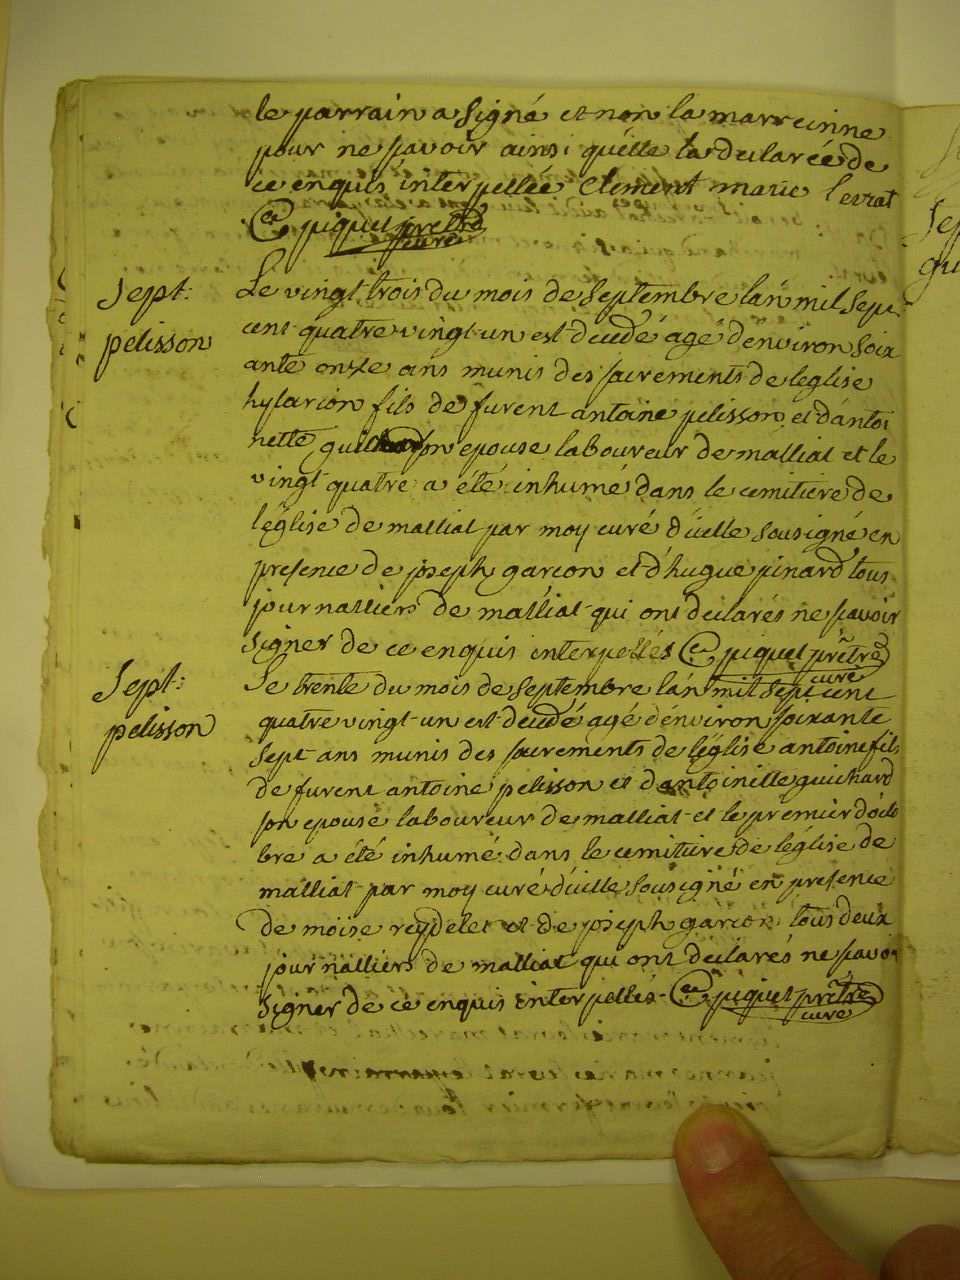 le parrain a signé et non la marreinne
pour ne sçavoir ainsi qu'elle la declarée de
ce enquis interpellée Clement marie levrat
piquet prêtre
curé
Sept:
pelisson
Le vingt trois du mois de septembre l'an mil sept
cent quatre vingt un est decedé agé d'environ soix
ante onze ans munis des sacrements de leglise
hylarion fils de furent antoine pelisson et d'antoi
nette son epouse laboureur de malliat et le
vingt quatre a été inhumé dans le cemitiere de
l'église de malliat par moy curé d'icelle sousigné en
presence de joseph garcon et d'hugue pinard tous
journalliers de malliat qui ont declarés ne sçavoir
signer de ce enquis interpellés piquet prêtre
curé
Sept:
pelisson
Le trente du mois de septembre l'an mil sept cent
quatre vingt un est decedé agé d'environ soixante
sept ans munis des sacrements de l'église antoine fils
de furent antoine pelisson et d'antoinille guichard
son epouse laboureur de malliat et le premier d'octo
bre a été inhumé dans le cemitiere de l'église de
malliat par moy curé d'icelle sousigné en presence
de moise reydelet et de joseph garcon tous deux
journalliers de malliat qui ont declarés ne sçavoir
signer de ce enquis interpellés piquet prêtre
curé